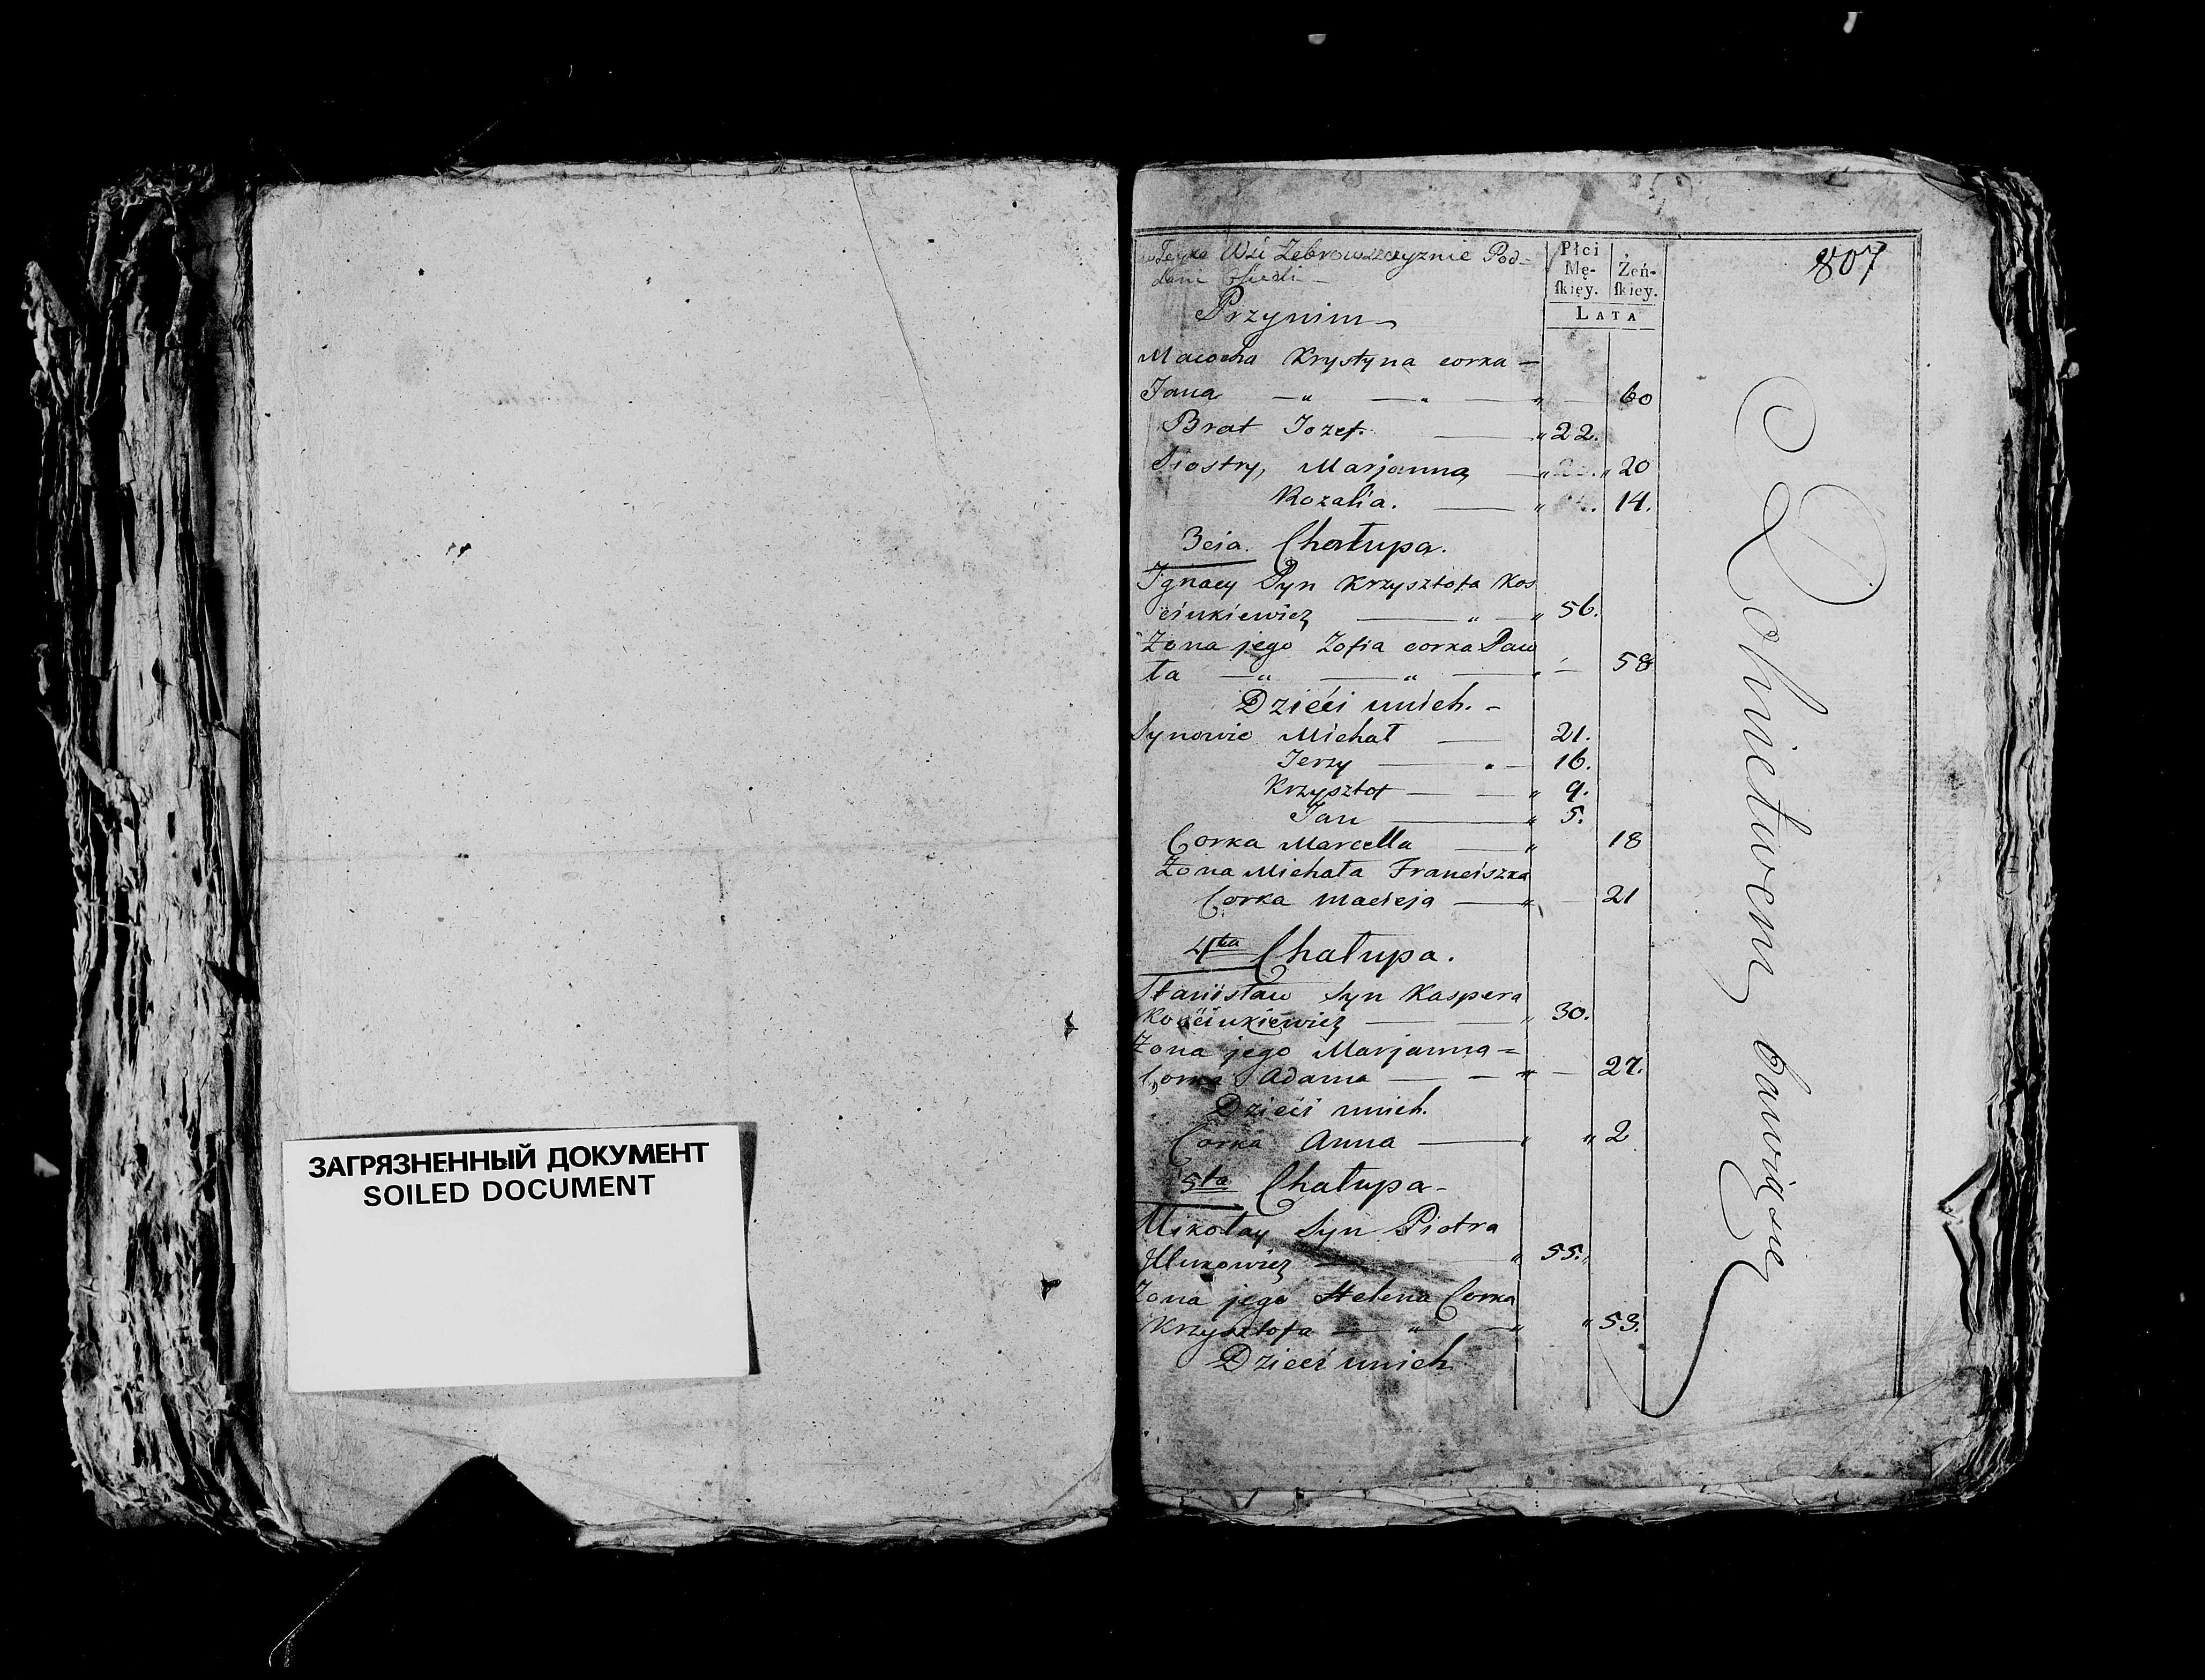 ЗАГРЯЗНЕННЫЙ ДОКУМЕНТ
SOILED DOCUMENT
807
Wsi Zebrowszczyznie Pod-
dani
Płci
Mę-
ſkiey.
Żeń-
ſkiey.
LATA
Przynim
Macocha Krystyna corka —
Jana — " — " — " — 60
Brat Jozef. — " 22.
Siostry, Marjanna — " 20
Rozalia. — " 14.
3cia. Chałupa.
Ignacy Syn Krzysztofa Kos
ciukiewicz — " — " 56.
Żona jego Zofia corka Paw
ła — " — " — 58
Dzieci unich. -
Synowie Michał — 21.
Jerzy — 16.
Krzysztof — — " 9.
Jan — " 5.
Corka Marcella — " 18
Żona Michała Franciszka
Corka Macieja — " — 21
4ta Chałupa.
Stanisław Syn Kaspera
Kościukiewicz — — " 30.
Żona jego Marjanna =
Corka Adama — — " — 27.
Dzieci unich.
Corka Anna — " " 2
5ta Chałupa -
Mikołay Syn Piotra
— " 55."
Żona jego Helena Corka
Krzysztofa — " — " " 53.
Dzieci unich
Rolnictwem bawią się